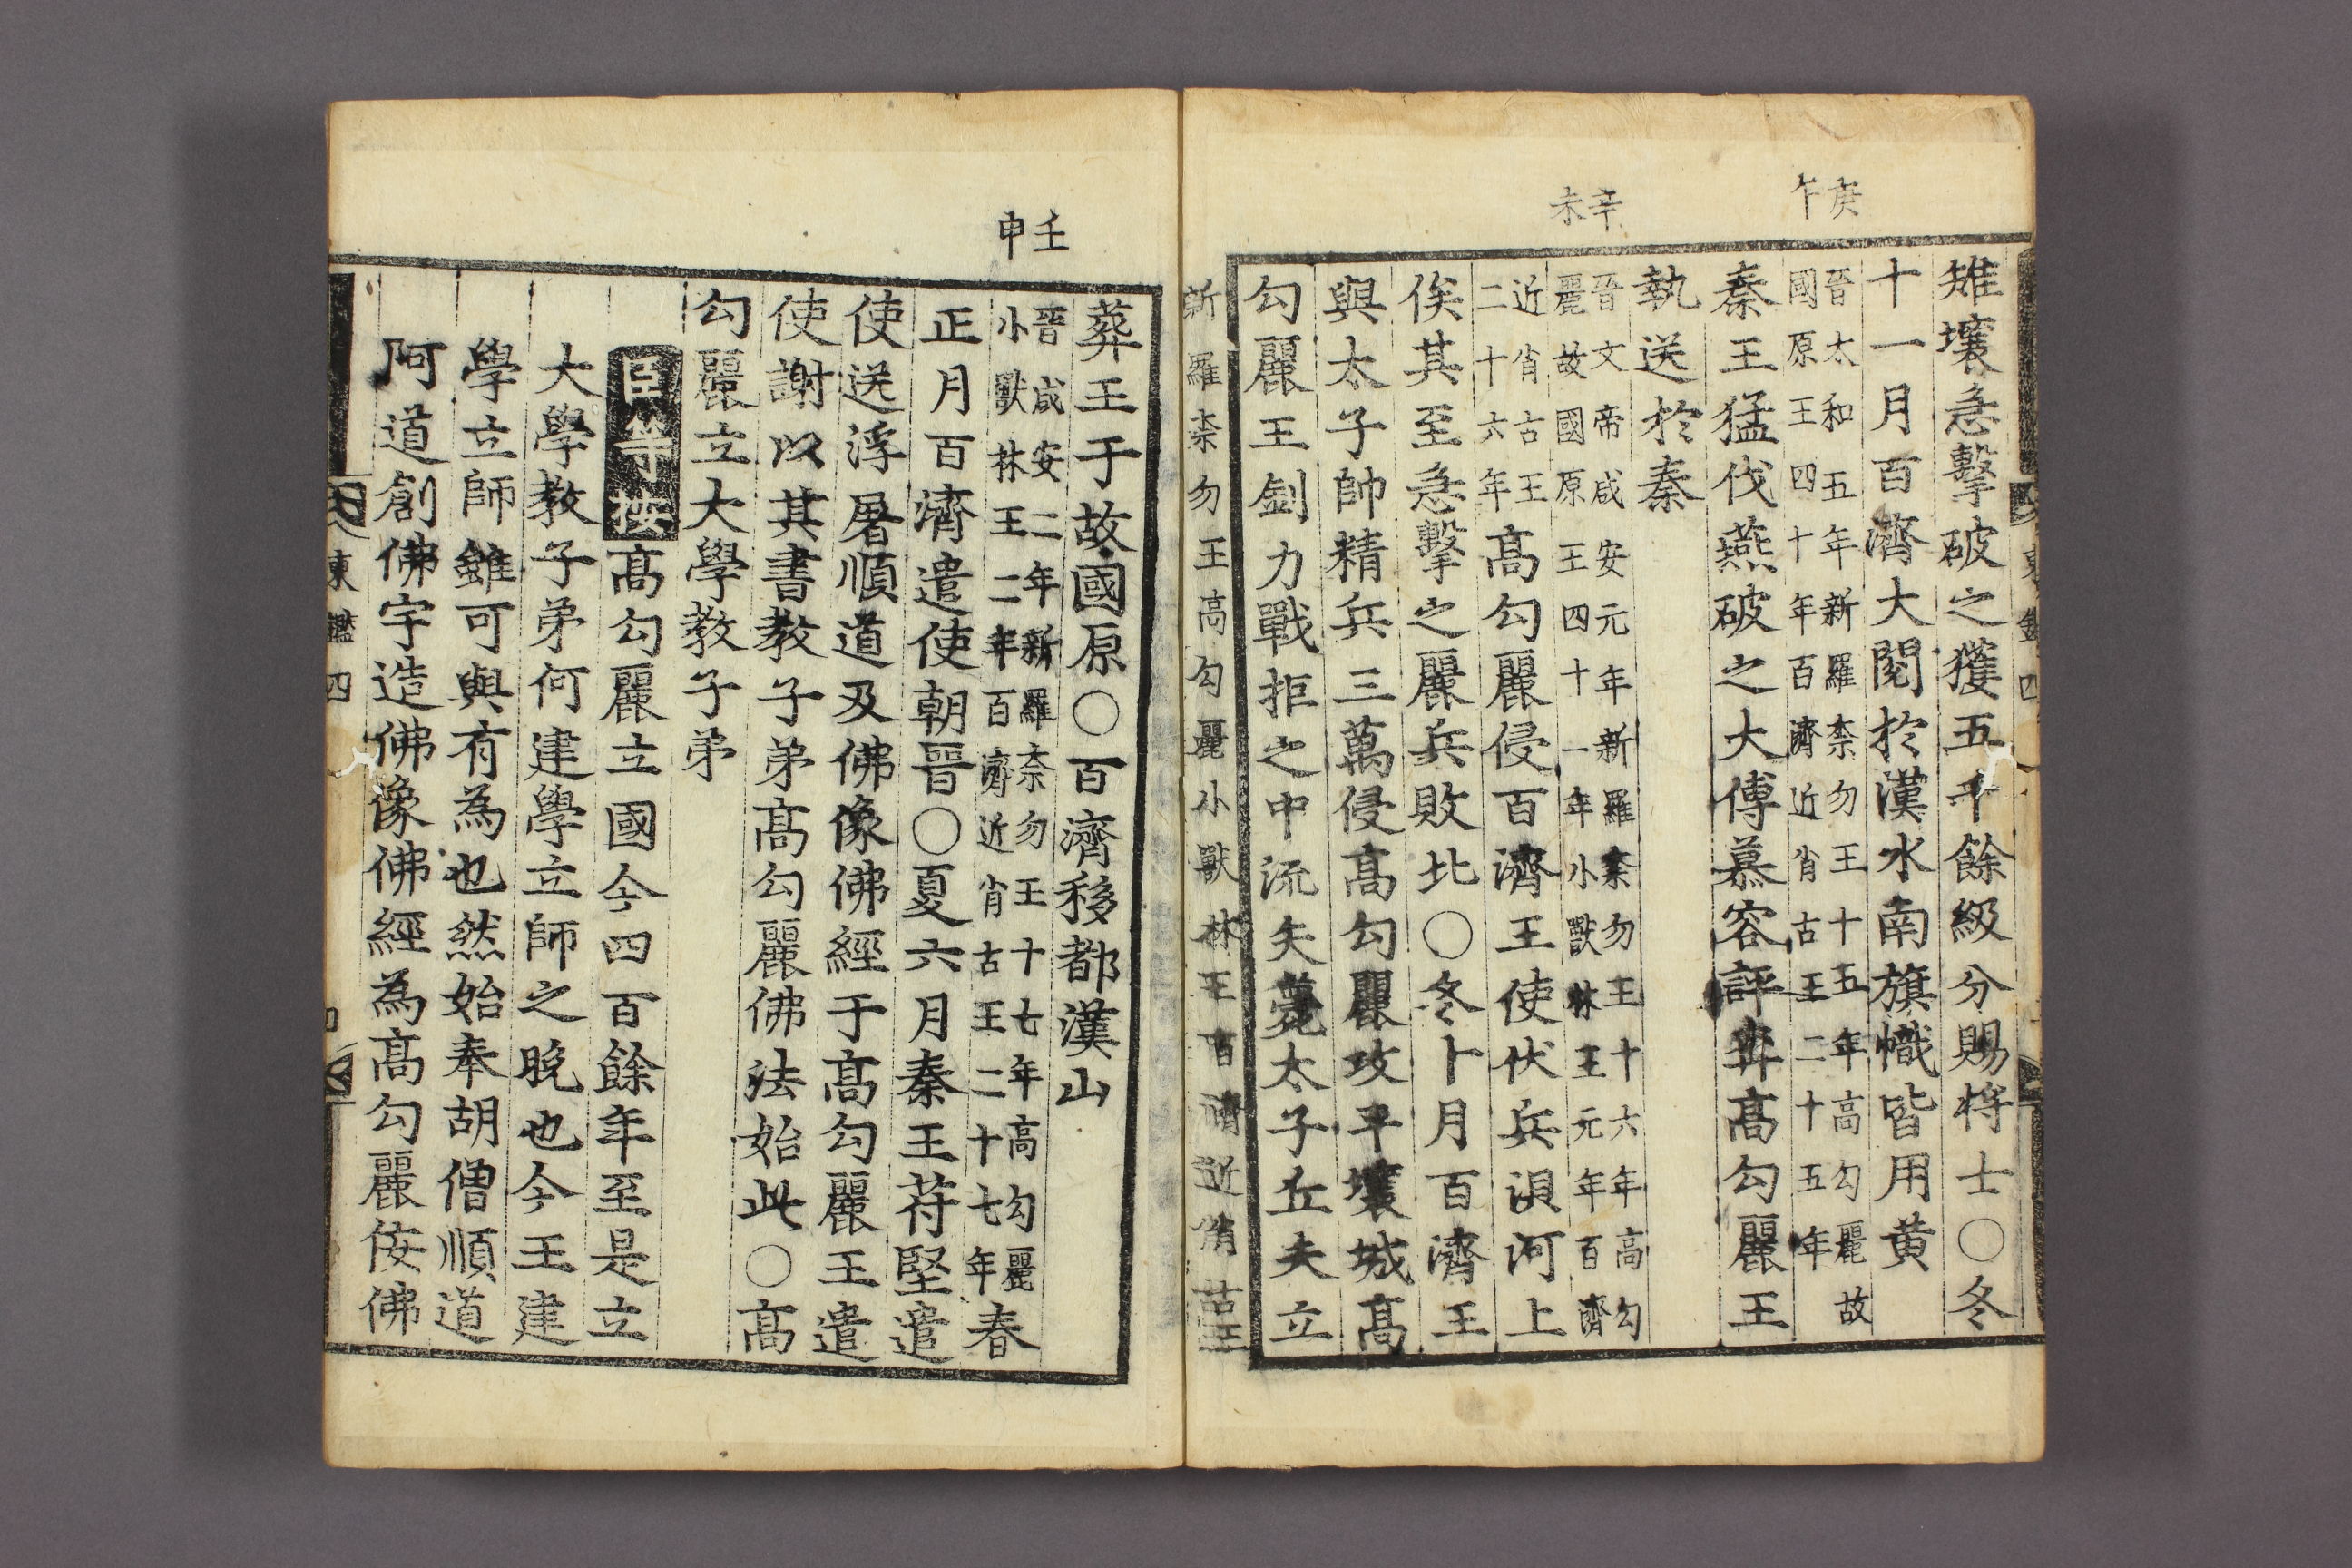 雉壤急擊破之獲五千餘級分賜將士〇冬
十一月百濟大閱於漢水南旗幟皆用黄
庚午
晉太和五年新羅柰勿王十五年高勾麗故
國原王四十年百濟近肖古王二十五年
秦王猛伐燕破之大傅慕容評奔高勾麗王
執送於秦
辛未
晉文帝咸安元年新羅柰勿王十六年高勾
麗故國原王四十一年小獸林王元年百濟
近肖古王
二十六年高勾麗侵百濟王使伏兵浿河上
俟其至急擊之麗兵敗北〇冬十月百濟王
與太子帥精兵三萬侵高勾麗攻平壤城高
勾麗王釗力戰拒之中流矢薨太子丘夫立
新羅柰勿王高勾麗小獸林王百濟近肖古王
葬王于故國原〇百濟移都漢山
壬申
晉咸安二年新羅柰勿王十七年高勾麗
小獸林王二年百濟近肖古王二十七年春
正月百濟遣使朝晉〇夏六月秦王苻堅遣
使送浮屠順道及佛像佛經于高勾麗王遣
使謝以其書教子弟高勾麗佛法始此〇高
勾麗立大學教子弟
臣等按高勾麗立國今四百餘年至是立
大學教子弟何建學立師之晚也今王建
學立師雖可與有為也然始奉胡僧順道
阿道創佛宇造佛像佛經為高勾麗侫佛
東鑑四